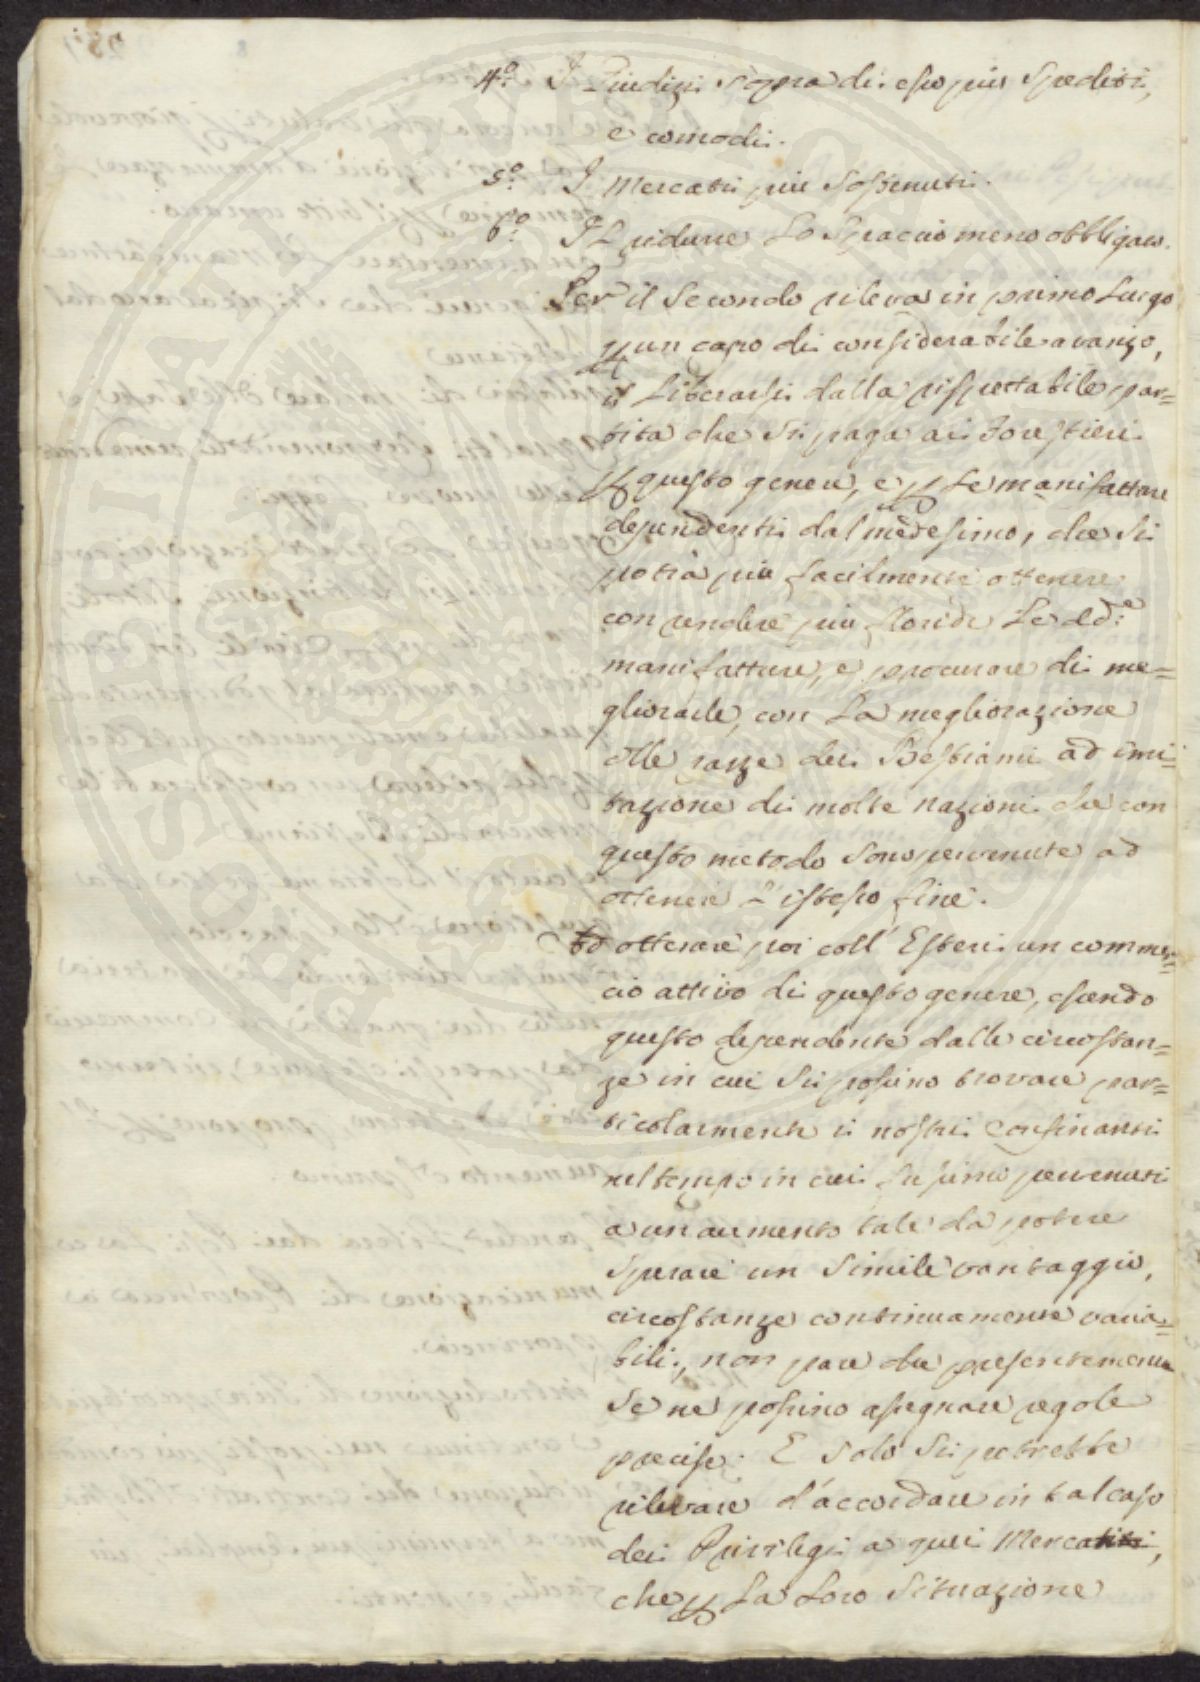 4.º I Giudizi sopra di esso piu Spediti,
e comodi.
5.º I Mercati piu Sostenuti.
6.º Il ridurre Lo Spaccio meno obbligato.
Per il Secondo rileva in primo Luogo
p un capo di considerabile avanzo,
il Liberarsi dalla rispettabile par=
tita che Si paga ai Forestieri
p questo genere, e p Le manifatture
dependenti dal medesimo, che Si
potrà piu facilmente ottenere
con rendere piu floride Le dd.e
manifatture, e procurare di me=
gliorarle, con La megliorazione
delle razze dei Bestiami ad imi=
tazione di molte nazioni che con
questo metodo Sono pervenute ad
ottenere L'istesso fine.
Ad ottenere poi coll' Esteri un commer=
cio attivo di questo genere, essendo
questo dependente dalle circostan=
ze in cui Si possino trovare par=
ticolarmente i nostri Confinanti
nel tempo in cui Si fussimo pervenuti
a un aumento tale da potere
Sperare un Simile vantaggio,
circostanze continuamente varia=
bili, non pare che presentemente
Se ne possino assegnare regole
precise. E Solo Si potrebbe
rilevare d'accordare in tal caso
dei Privilegi a quei Mercati,
che p La Loro Situazione